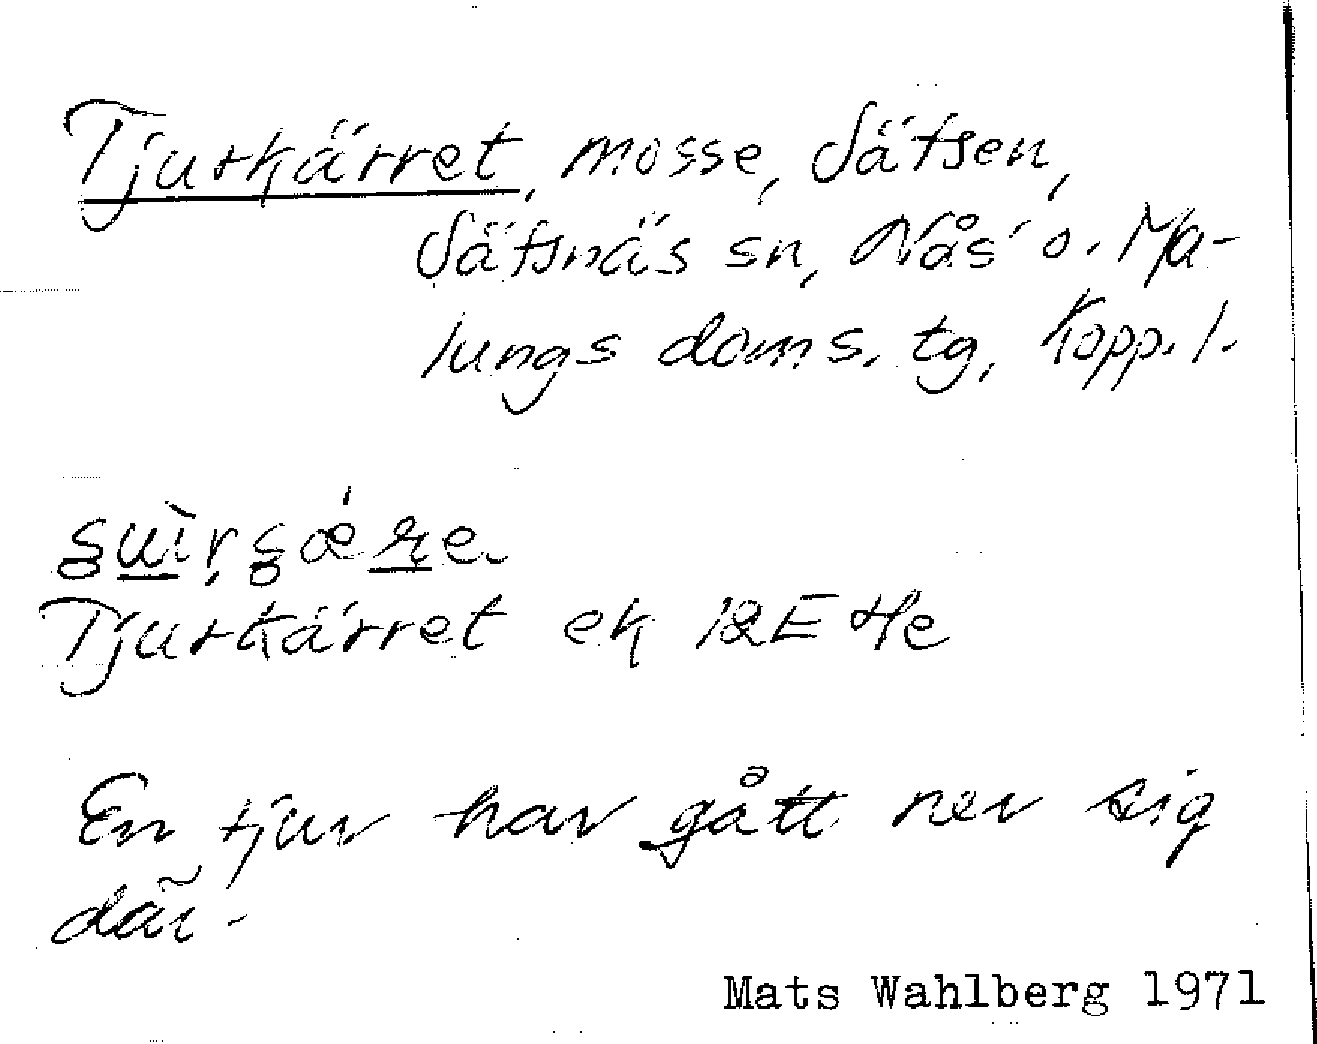 Tjurkärret, mosse, Säfsen,
Säfsnäs sn, Nås' o. Ma-
lungs doms. tg, Kopp. l.
Tjurkärret ek 12E He
En tjur har gått ner sig
där.
Mats Wahlberg 1971